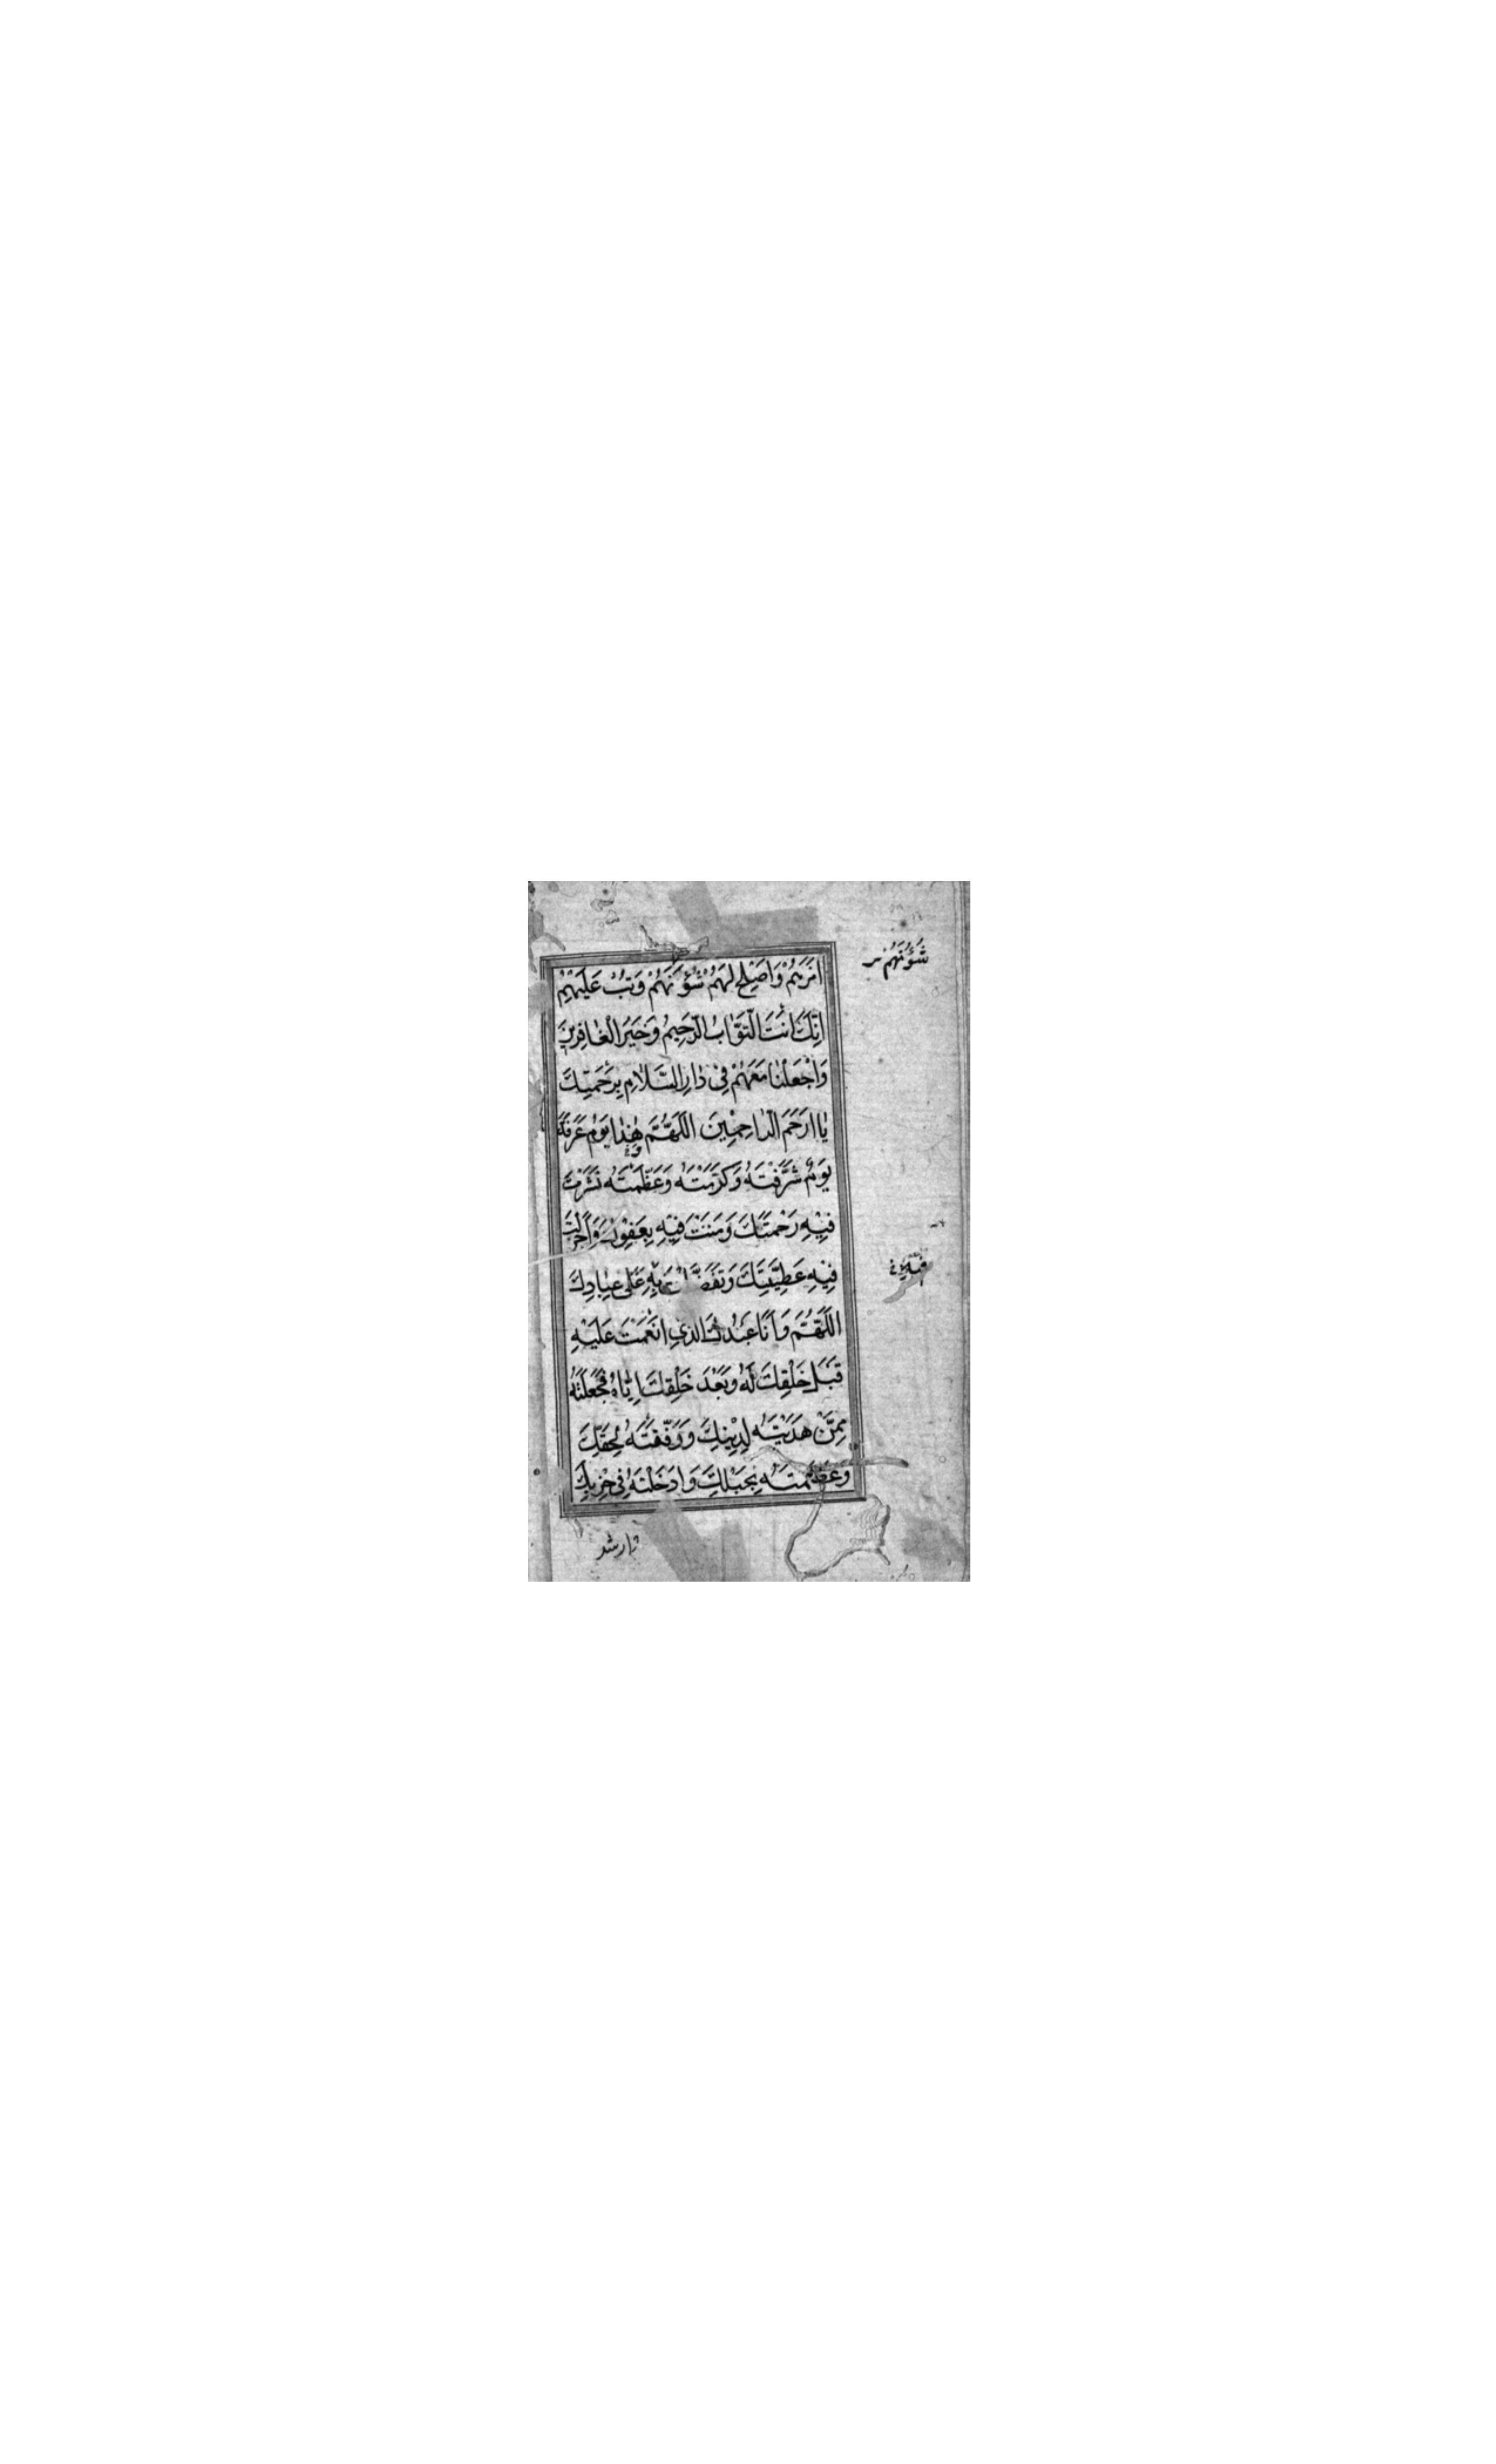 اَمْرَهُمْ وَاَصْلِحْ لَهُمْ شُؤُنَهُمْ وَتُبْ عَلَيْهِمْ
شُؤُنَهُمْ
اِنَّكَ اَنْتَ التَّوَّابُ الرَّحِيمُ وَخَيْرُ الْغَافِرِينَ
وَاجْعَلْنَا مَعَهُمْ فِي دَارِ السَّلَامِ بِرَحْمَتِكَ
يَا اَرْحَمَ الرَّاحِمِينَ اللّٰهُمَّ هٰذَا يَوْمُ عَرَفَةَ
يَوْمٌ شَرَّفْتَهُ وَكَرَّمْتَهُ وَعَظَّمْتَهُ نَشَرْتَ
فِيهِ رَحْمَتَكَ وَمَنَنْتَ فِيهِ بِعَفْوِكَ وَاَجْزَلْتَ
فِيهِ عَطِيَّتَكَ وَتَفَضَّلْتَ بِهِ عَلَى عِبَادِكَ
اللّٰهُمَّ وَاَنَا عَبْدُكَ الَّذِي اَنْعَمْتَ عَلَيْهِ
قَبْلَ خَلْقِكَ لَهُ وَبَعْدَ خَلْقِكَ اِيَّاهُ فَجَعَلْتَهُ
مِمَّنْ هَدَيْتَهُ لِدِينِكَ وَوَفَّقْتَهُ لِحَقِّكَ
وَعَصَمْتَهُ بِحَبْلِكَ وَاَدْخَلْتَهُ فِي حِزْبِكَ
وارشد